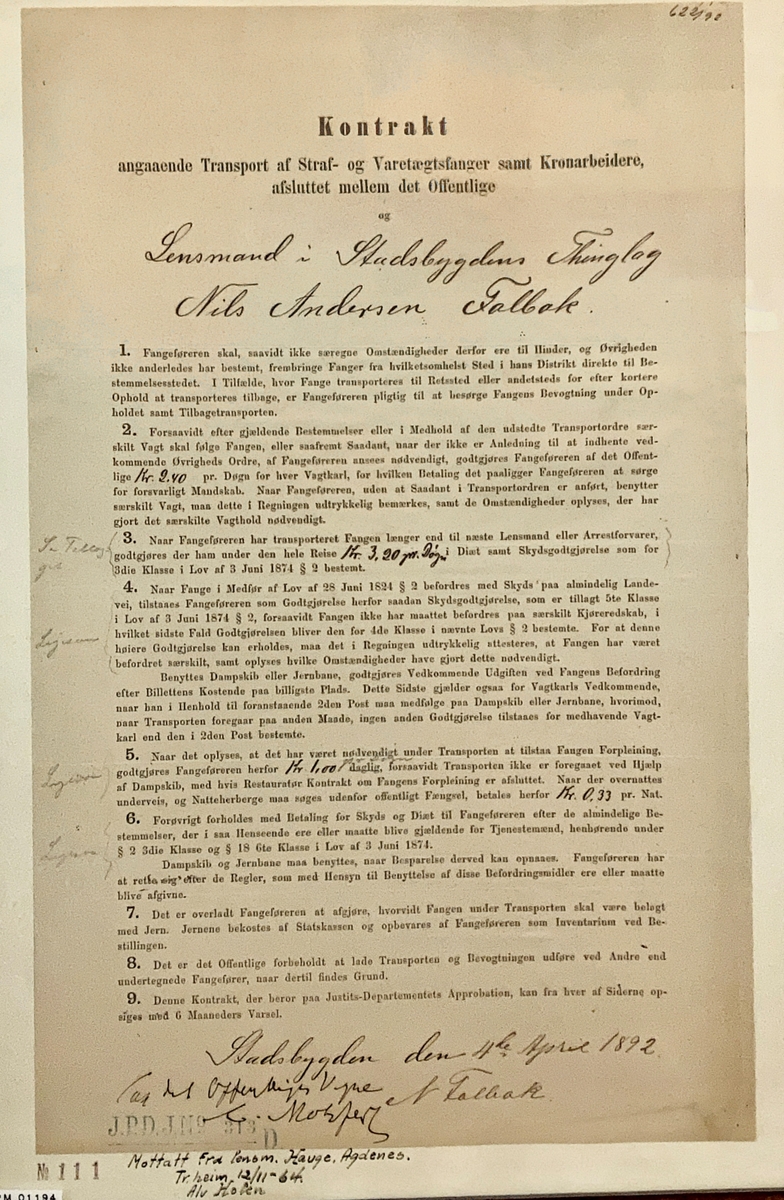 622/92
Kontrakt
angaaende Transport af Straf- og Varetægtsfanger samt Kronarbeidere,
afsluttet mellem det Offentlige
og
Lensmand i Stadsbygdens Thinglag
Nils Andersen Falbok.
1. Fangeføreren skal, saavidt ikke særegne Omstændigheder derfor ere til Hinder, og Øvrigheden
ikke anderledes har bestemt, frembringe Fanger fra hvilketsomhelst Sted i hans Distrikt direkte til Be-
stemmelsesstedet. I Tilfælde, hvor Fange transporteres til Retssted eller andetsteds for efter kortere
Ophold at transporteres tilbage, er Fangeføreren pligtig til at besørge Fangens Bevogtning under Op-
holdet samt Tilbagetransporten.
2. Forsaavidt efter gjældende Bestemmelser eller i Medhold af den udstedte Transportordre sær-
skilt Vagt skal følge Fangen, eller saafremt Saadant, naar der ikke er Anledning til at indhente ved-
kommende Øvrigheds Ordre, af Fangeføreren ansees nødvendigt, godtgjøres Fangeføreren af det Offent-
lige Kr. 2.40 pr. Døgn for hver Vagtkarl, for hvilken Betaling det paaligger Fangeføreren at sørge
for forsvarligt Mandskab. Naar Fangeføreren, uden at Saadant i Transportordren er anført, benytter
særskilt Vagt, maa dette i Regningen udtrykkelig bemærkes, samt de Omstændigheder oplyses, der har
gjort det særskilte Vagthold nødvendigt.
3. Naar Fangeføreren har transporteret Fangen længer end til næste Lensmand eller Arrestforvarer,
godtgjøres der ham under den hele Reise Kr. 3,20 pr. Døgn i Diæt samt Skydsgodtgjørelse som for
3die Klasse i Lov af 3 Juni 1874 § 2 bestemt.
4. Naar Fange i Medfør af Lov af 28 Juni 1824 § 2 befordres med Skyds paa almindelig Lande-
vei, tilstaaes Fangeføreren som Godtgjørelse herfor saadan Skydsgodtgjørelse, som er tillagt 5te Klasse
i Lov af 3 Juni 1874 § 2, forsaavidt Fangen ikke har maattet befordres paa særskilt Kjøreredskab, i
hvilket sidste Fald Godtgjørelsen bliver den for 4de Klasse i nævnte Lovs § 2 bestemte. For at denne
høiere Godtgjørelse kan erholdes, maa det i Regningen udtrykkelig attesteres, at Fangen har været
befordret særskilt, samt oplyses hvilke Omstændigheder have gjort dette nødvendigt.
Benyttes Dampskib eller Jernbane, godtgjøres Vedkommende Udgiften ved Fangens Befordring
efter Billettens Kostende paa billigste Plads. Dette Sidste gjælder ogsaa for Vagtkarls Vedkommende,
naar han i Henhold til foranstaaende 2den Post maa medfølge paa Dampskib eller Jernbane, hvorimod,
naar Transporten foregaar paa anden Maade, ingen anden Godtgjørelse tilstaaes for medhavende Vagt-
karl end den i 2den Post bestemte.
5. Naar det oplyses, at det har været nødvendigt under Transporten at tilstaa Fangen Forpleining,
godtgjøres Fangeføreren herfor Kr 1,00 daglig, forsaavidt Transporten ikke er foregaaet ved Hjælp
af Dampskib, med hvis Restauratør Kontrakt om Fangens Forpleining er afsluttet. Naar der overnattes
underveis, og Natteherberge maa søges udenfor offentligt Fængsel, betales herfor Kr. 0,33 pr. Nat.
6. Forøvrigt forholdes med Betaling for Skyds og Diæt til Fangeføreren efter de almindelige Be-
stemmelser, der i saa Henseende ere eller maatte blive gjældende for Tjenestemænd, henhørende under
§ 2 3die Klasse og § 18 6te Klasse i Lov af 3 Juni 1874.
Dampskib og Jernbane maa benyttes, naar Besparelse derved kan opnaaes. Fangeføreren har
at rette sig efter de Regler, som med Hensyn til Benyttelse af disse Befordringsmidler ere eller maatte
blive afgivne.
7. Det er overladt Fangeføreren at afgjøre, hvorvidt Fangen under Transporten skal være belagt
med Jern. Jernene bekostes af Statskassen og opbevares af Fangeføreren som Inventarium ved Be-
stillingen.
8. Det er det Offentlige forbeholdt at lade Transporten og Bevogtningen udføre ved Andre end
undertegnede Fangefører, naar dertil findes Grund.
9. Denne Kontrakt, der beror paa Justits-Departementets Approbation, kan fra hver af Siderne op-
siges med 6 Maaneders Varsel.
Stadsbygden den 4de April 1892
Paa det Offentliges Vegne
N Falbok.
J.P.D.J.No
D
Mottatt fra lensm. Hauge, Agdenes.
Tr.heim, 12/11-64.
Alv Holen
No 111
PM 01194